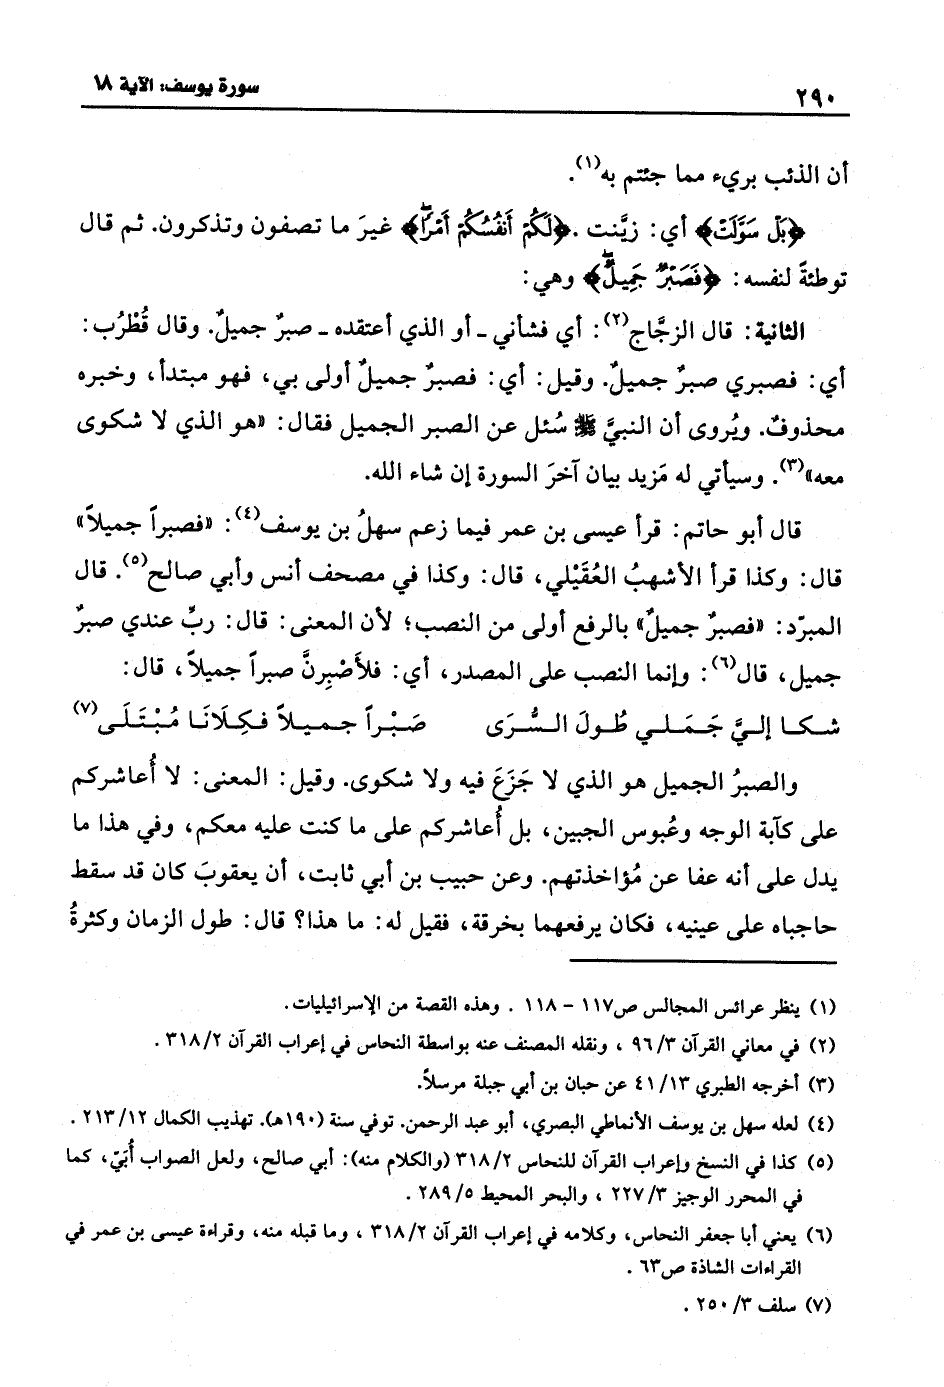 سورة يوسف: الآية ١٨
٢٩٠
أن الذئب بريء مما جئتم به(١).
﴿بَلْ سَوَّلَتْ﴾ أي: زيَّنت. ﴿لَكُمْ أَنفُسُكُمْ أَمْرًا﴾ غيرَ ما تصفون وتذكرون. ثم قال
توطئةً لنفسه: ﴿فَصَبْرٌ جَمِيلٌ﴾ وهي:
الثانية: قال الزجَّاج(٢): أي فشأني ـ أو الذي أعتقده ـ صبرٌ جميلٌ. وقال قُطْرُب:
أي: فصبري صبرٌ جميلٌ. وقيل: أي: فصبرٌ جميلٌ أولى بي، فهو مبتدأ، وخبره
محذوفٌ. ويُروى أن النبيَّ ﷺ سُئل عن الصبر الجميل فقال: «هو الذي لا شكوى
معه»(٣). وسيأتي له مَزيد بيان آخرَ السورة إن شاء الله.
قال أبو حاتم: قرأ عيسى بن عمر فيما زعم سهلُ بن يوسف(٤): «فصبراً جميلاً»
قال: وكذا قرأ الأشهبُ العُقَيْلي، قال: وكذا في مصحف أنس وأبي صالح(٥). قال
المبرّد: «فصبرٌ جميلٌ» بالرفع أولى من النصب؛ لأن المعنى: قال: ربِّ عندي صبرٌ
جميل، قال(٦): وإنما النصب على المصدر، أي: فلأَصْبِرنَّ صبراً جميلاً، قال:
شكا إليَّ جَمَلي طُولَ السُّرَى صَبْراً جميلاً فكِلَانَا مُبْتَلَى(٧)
والصبرُ الجميل هو الذي لا جَزَعَ فيه ولا شكوى. وقيل: المعنى: لا أُعاشركم
على كآبة الوجه وعُبوس الجبين، بل أُعاشركم على ما كنت عليه معكم، وفي هذا ما
يدل على أنه عفا عن مُؤاخذتهم. وعن حبيب بن أبي ثابت، أن يعقوبَ كان قد سقط
حاجباه على عينيه، فكان يرفعهما بخرقة، فقيل له: ما هذا؟ قال: طول الزمان وكثرةُ
(١) ينظر عرائس المجالس ص١١٧ - ١١٨ . وهذه القصة من الإسرائيليات.
(٢) في معاني القرآن ٩٦/٣ ، ونقله المصنف عنه بواسطة النحاس في إعراب القرآن ٣١٨/٢ .
(٣) أخرجه الطبري ٤١/١٣ عن حبان بن أبي جبلة مرسلاً.
(٤) لعله سهل بن يوسف الأنماطي البصري، أبو عبد الرحمن. توفي سنة (١٩٠هـ). تهذيب الكمال ٢١٣/١٢ .
(٥) كذا في النسخ وإعراب القرآن للنحاس ٣١٨/٢ (والكلام منه): أبي صالح، ولعل الصواب أُبَيّ، كما
في المحرر الوجيز ٢٢٧/٣ ، والبحر المحيط ٢٨٩/٥ .
(٦) يعني أبا جعفر النحاس، وكلامه في إعراب القرآن ٣١٨/٢ ، وما قبله منه، وقراءة عيسى بن عمر في
القراءات الشاذة ص٦٣ .
(٧) سلف ٢٥٠/٣ .